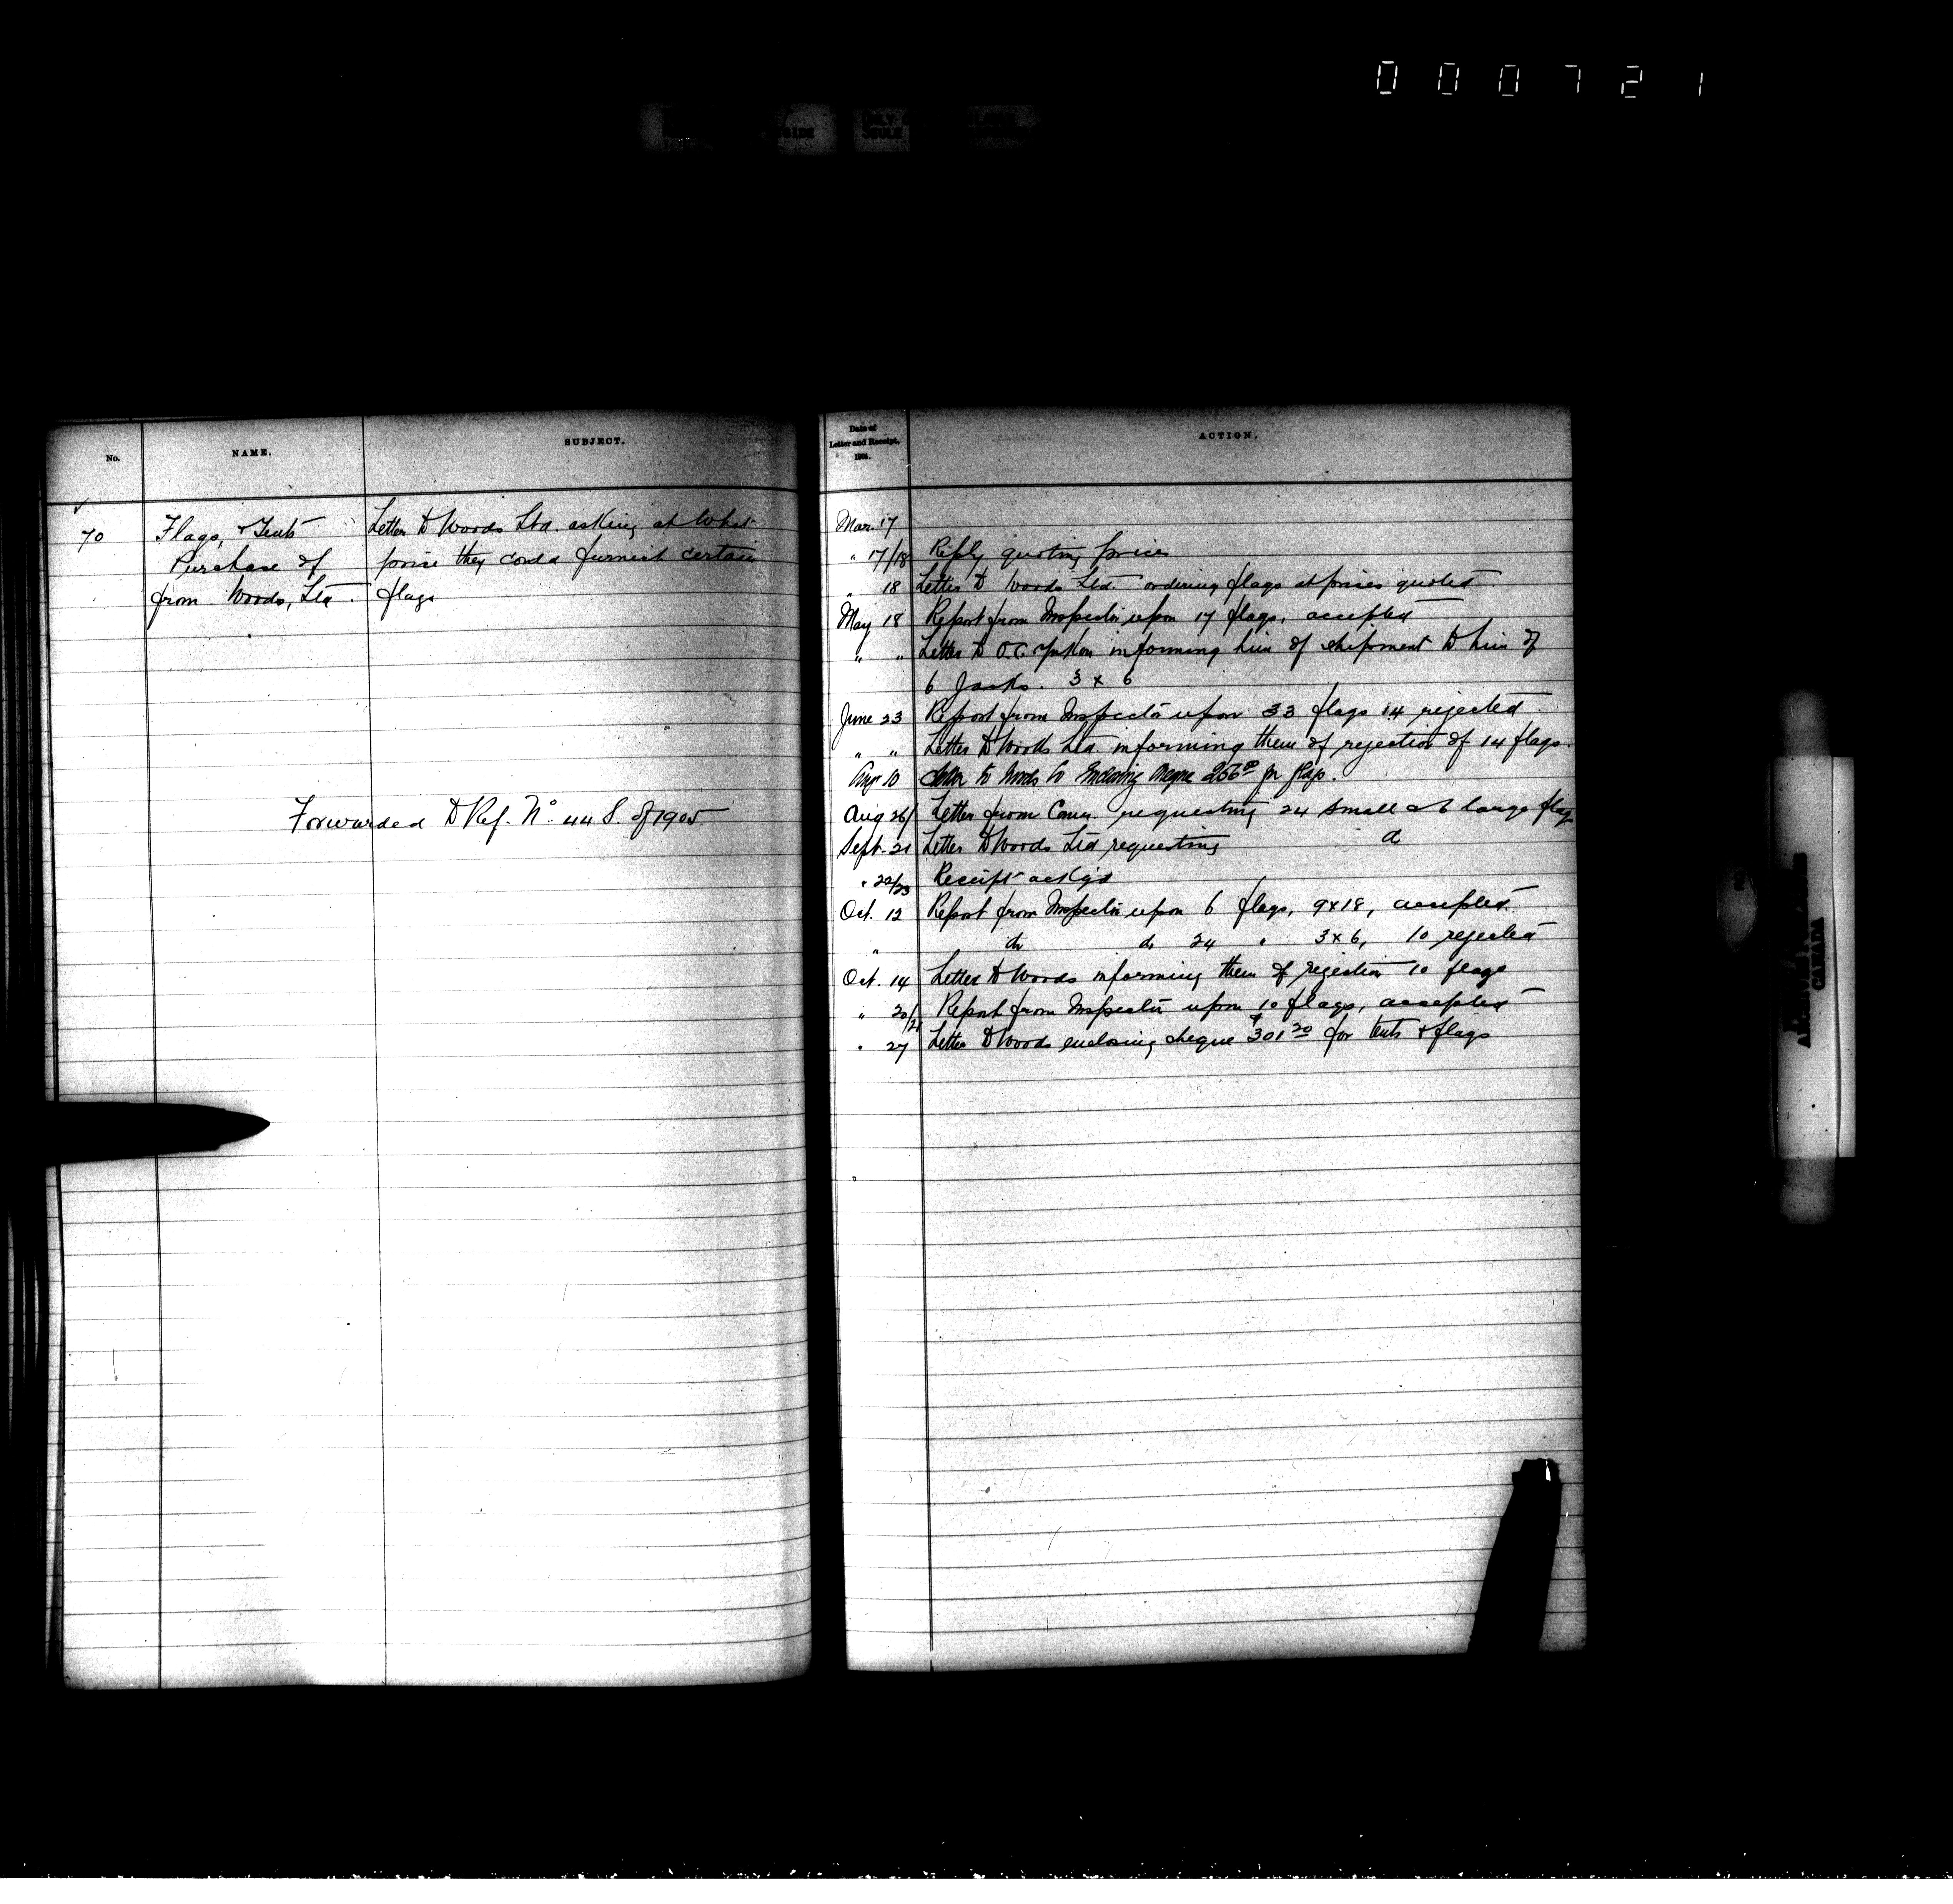 000721
No.
NAME.
SUBJECT.
70
Flags, & Tents
Purchase of
from Woods, Ltd
Letter to Woods Ltd. asking at what
price they could furnish certain
flags
Forwarded to Ref. No. 44 S. of 1905
Date of
Letter and Receipt,
1904.
ACTION.
Mar. 17
" 17/18 Reply quoting prices
" 18 Letter to Woods Ltd. ordering flags at prices quoted
May 18 Report from Inspector upon 17 flags, accepted
" " Letter to O.C. Yukon informing him of shipment to him of
6 Jacks. 3 x 6
June 23 Report from Inspector upon 33 flags 14 rejected
" " Letter to Woods Ltd. informing them of rejection of 14 flags.
10 Letter to Woods Co Enclosing cheque for flags.
Aug 26/ Letter from Comr. requesting 24 small & 6 large flags
Sept. 21 Letter to Woods Ltd requesting do
" 22/23 Receipt ackgd
Oct. 12 Report from Inspector upon 6 flags, 9x18, accepted.
" do do 24 " 3x6, 10 rejected
Oct. 14 Letter to Woods informing them of rejection 10 flags
" 20/21 Report from Inspector upon 10 flags, accepted
" 27 Letter to Woods enclosing cheque $301 20 for tents & flags